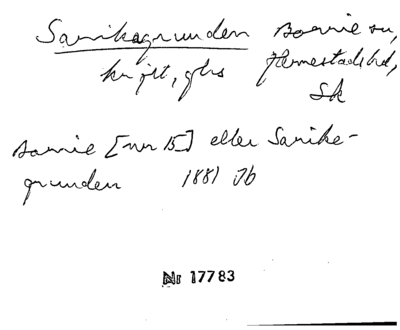 Sarikagrunden Bonnie sn,
kn jtl, gbs Jerrestads hd,
Sk
Bonnie [nr 15] eller Sarike-
grunden 1881 Jb
Nr 17783